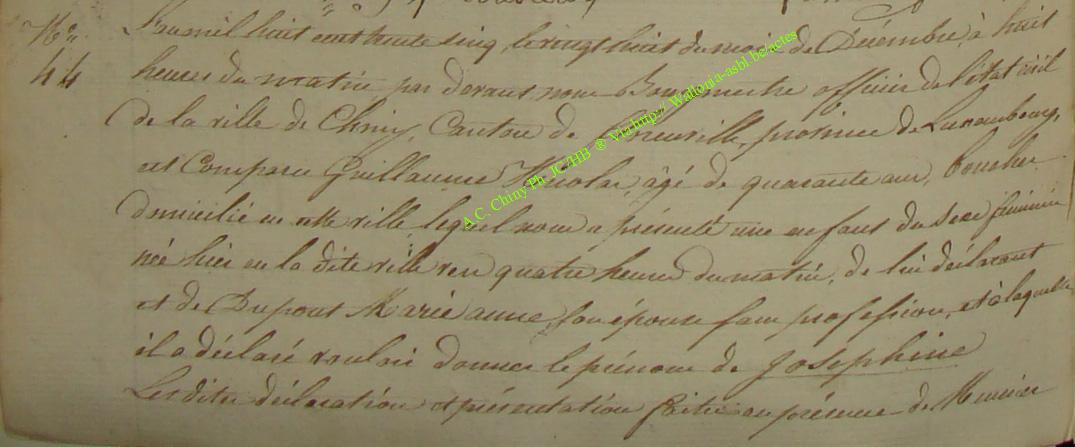 N°
44
L'an mil huit cent trente cinq, le vingt huit du mois de Décembre, à huit
heures du matin par devant nous Bourgmestre officier de l'état civil
de la ville de Chiny, Canton de province de Luxembourg,
est Comparu Guillaume Nicolas, âgé de quarante ans, boucher
domicilié en cette ville lequel nous a présenté une enfant du sexe féminin
née hier en la dite ville vers quatre heures du matin, de lui déclarant
et de Dupont Marie anne, son épouse sans profession, et à laquelle
il a déclaré vouloir donner le prénom de Josephine
Les dites déclaration et présentation faites en présence de
A.C. Chiny Ph. JC/HB ® Vlarhrip / Wallonia-asbl.be/actes